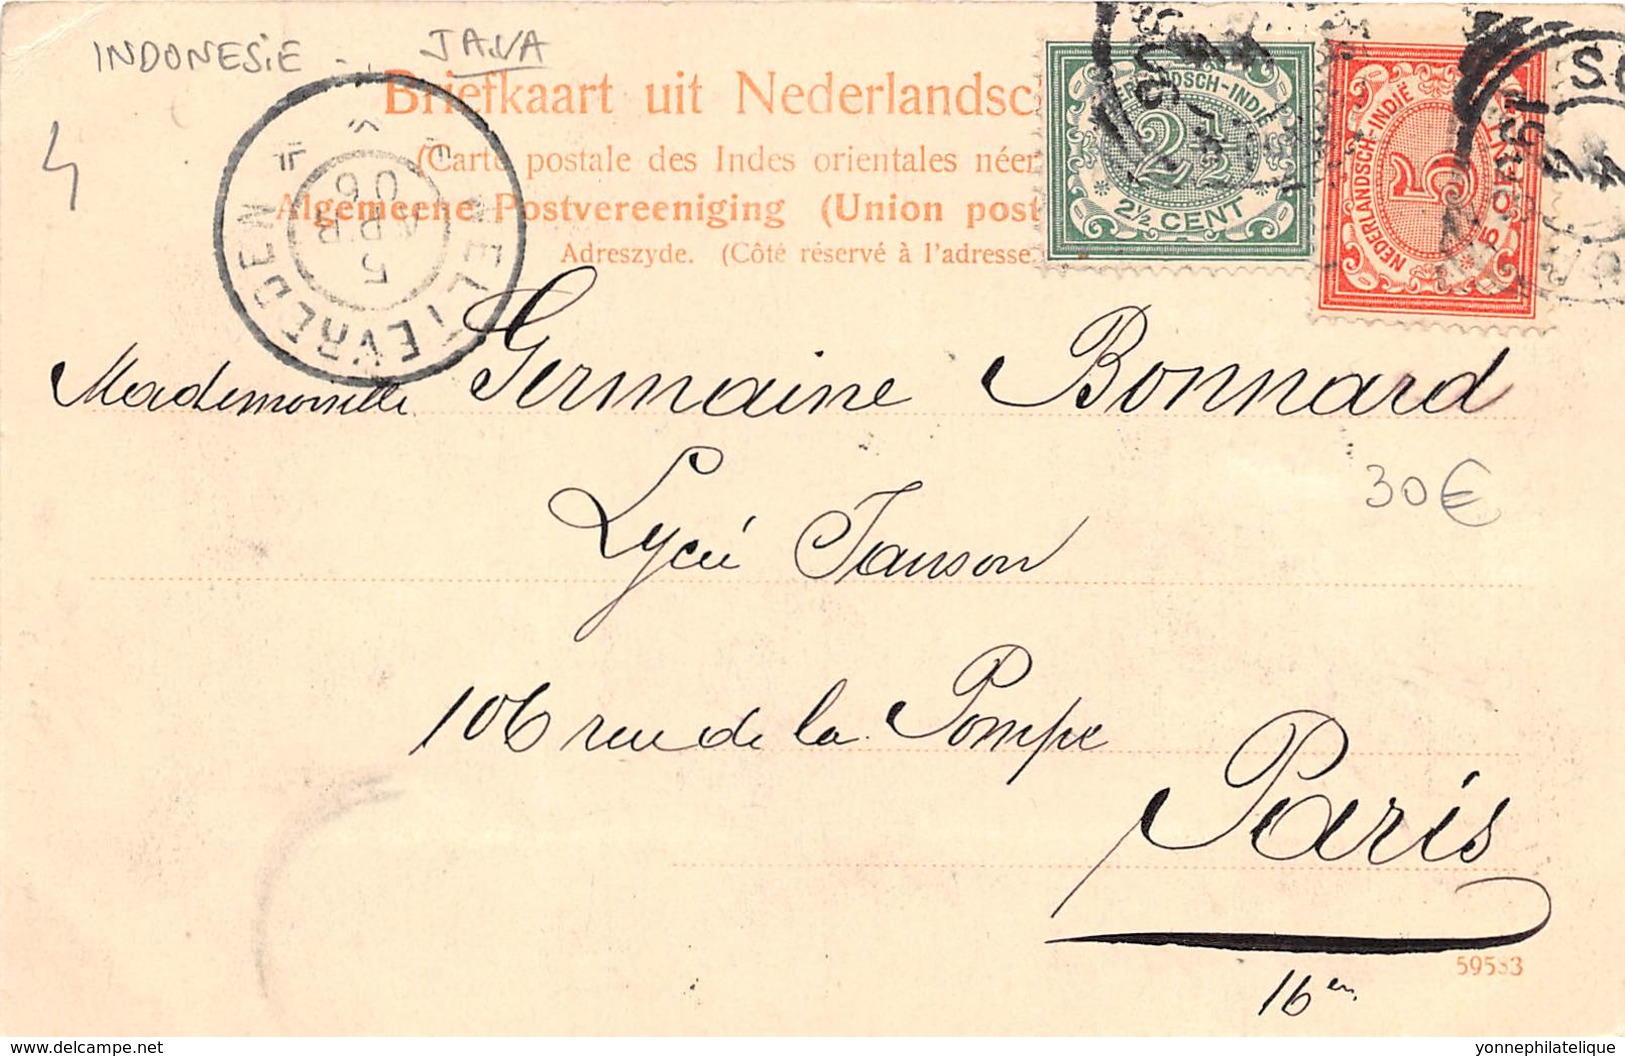 INDONESIE - JAVA
Briefkaart uit Nederlandsc
(Carte postale des Indes orientales néer
Algemeene Postvereeniging (Union post
Adreszyde. (Côté réservé à l'adresse
WELTEVREDEN
5
APR
06
NEDERLANDSCH-INDIË
2½
2½ CENT
NEDERLANDSCH-INDIË
5
4
Mademoiselle Germaine Bonnard
Lycée Janson
30€
106 rue de la Pompe
Paris
16e
59583
delcampe.net
yonnephilatelique